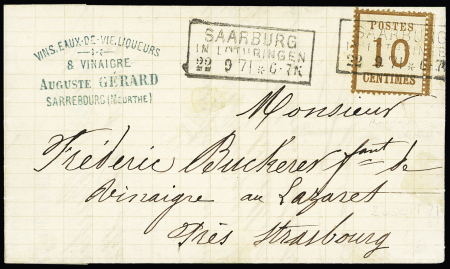 VINS, EAUX-DE-VIE, LIQUEURS
& VINAIGRE
AUGUSTE GÉRARD
SARREBOURG (MEURTHE)
SAARBURG
IN LOTHRINGEN
22 9 71 * 6-7N
POSTES
10
CENTIMES
22 9 * 6-7N
Monsieur
Frédéric Buckerer fant de
vinaigre au Lazaret
Près Strasbourg